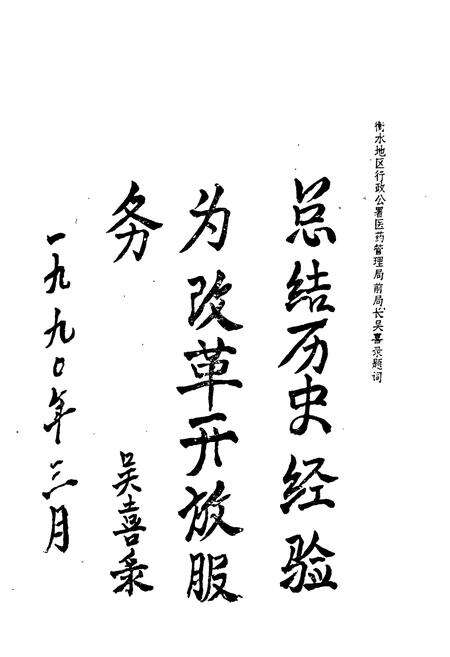 衡水地区行政公署医药管理局前局长吴喜录题词
总结历史经验
为改革开放服
务
吴喜录
一九九〇年三月